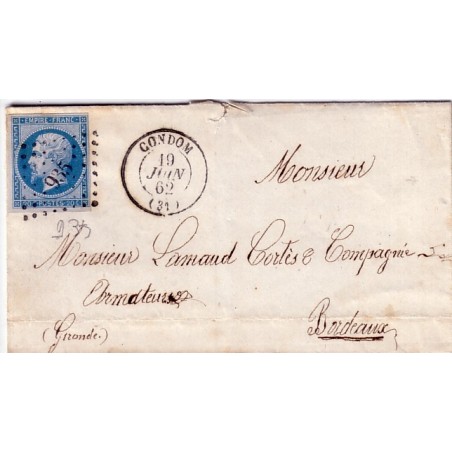 EMPIRE FRANC
935
POSTES
CONDOM
19
JUIN
62
(31)
935
Monsieur
Monsieur Lamaud Cortès & Compagnie
Armateurs
Bordeaux
(Gironde)